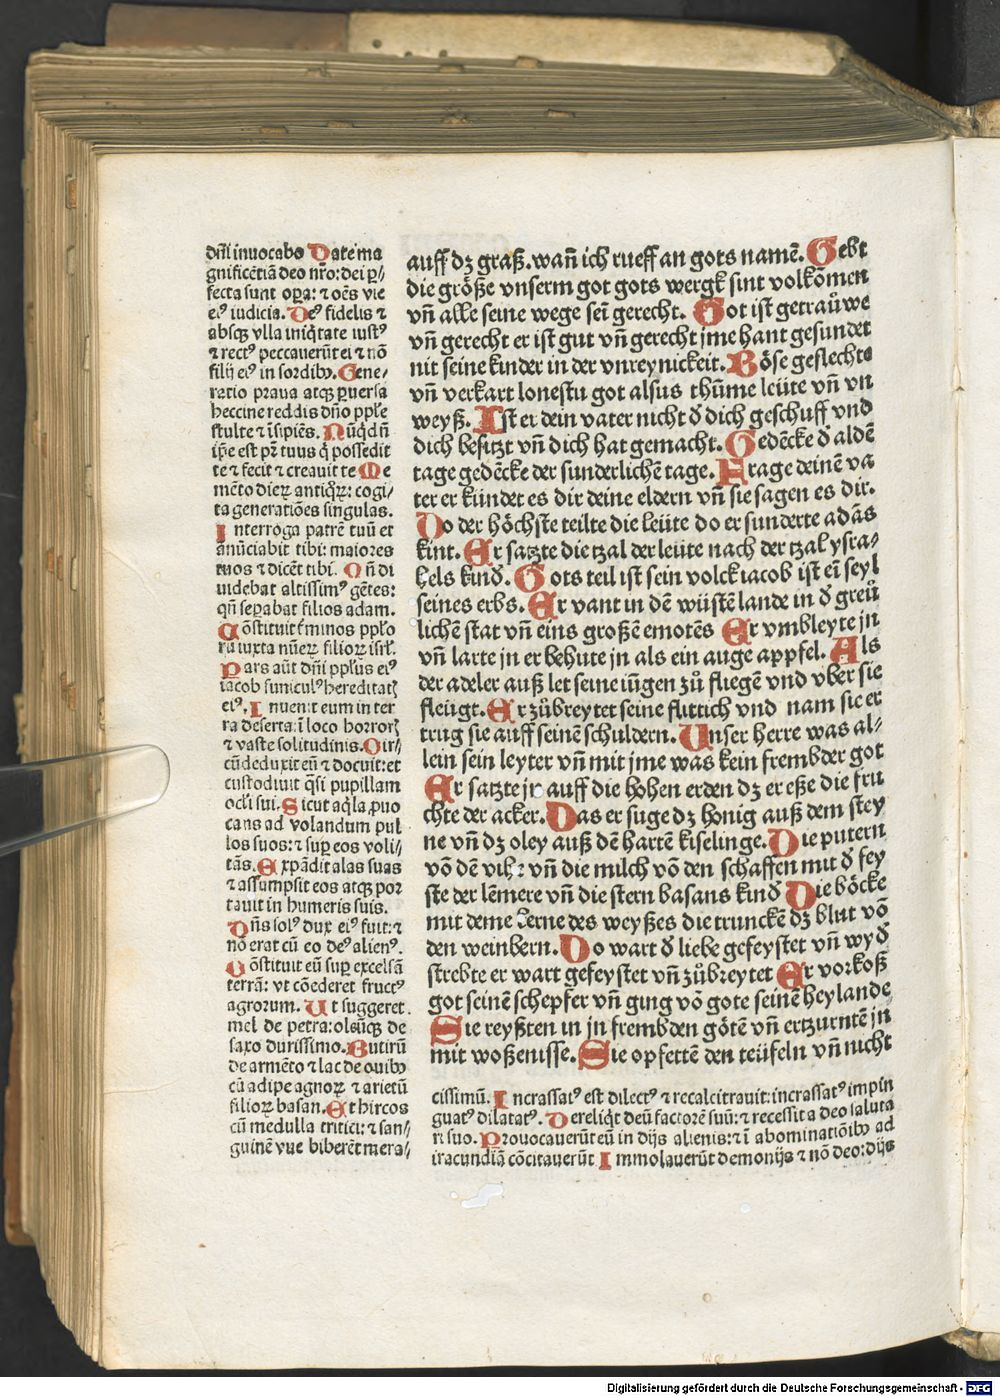 dñi inuocabo Date ma
gnificētiā deo nr̄o: dei ꝑ/
fecta sunt oꝑa: ⁊ oēs vie
eiꝰ iudicia. Deꝰ fidelis ⁊
absqꝫ vlla iniq̇tate iustꝰ
⁊ rectꝰ peccauerūt ei ⁊ nō
filij eiꝰ in sordibꝫ. Gene/
ratio praua atqꝫ ꝑuersa
heccine reddis dño pp̄le
stulte ⁊ īsipiēs. Nūqd ñ
ip̄e est pr̄ tuus q̇ possedit
te ⁊ fecit ⁊ creauit te Me
mēto dieꝝ antiq̊ꝝ: cogi/
ta generatiōes singulas.
Interroga patrē tuū et
anūciabit tibi: maiores
tuos ⁊ dicēt tibi. Qñ di
uidebat altissimꝰ gētes:
qñ seꝑabat filios adam.
Cōstituit t̄minos pp̄lo
rū iuxta nūeꝝ filioꝝ isrl̄.
Pars aūt dñi pp̄lus eiꝰ
iacob funiculꝰ hereditatꝭ
eiꝰ. Inuenit eum in ter
ra deserta: ī loco horrorꝭ
⁊ vaste solitudinis. Cir/
cūduxit eū ⁊ docuit: et
custodiuit q̄si pupillam
oculi sui. Sicut aq̇la ꝓuo
cans ad volandum pul
los suos: ⁊ suꝑ eos voli/
tās. Expādit alas suas
⁊ assumpsit eos atqꝫ por
tauit in humeris suis.
Dñs solꝰ dux eiꝰ fuit: ⁊
nō erat cū eo deꝰ alienꝰ.
Cōstituit eū suꝑ excelsā
terrā: vt cōederet fructꝰ
agrorum. Ut suggeret
mel de petra: oleūqꝫ de
saxo durissimo. Butirū
de armēto ⁊ lac de ouibꝫ
cū adipe agnoꝝ ⁊ arietū
filioꝝ basan. Et hircos
cū medulla tritici: ⁊ san/
guinē vue biberēt mera/
auff dz graß. wañ ich rueff an gots namē. Gebt
die größe vnserm got gots wergk sint volkōmen
vñ alle seine wege sei gerecht. Got ist getrauwe
vñ gerecht er ist gut vñ gerecht jme hant gesundet
nit seine kinder in der vnreynickeit. Böse geslechte
vñ verkart lonestu got alsus thūme leüte vñ vn
weyß. Ist er dein vater nicht ď dich geschuff vnd
dich besitzt vñ dich hat gemacht. Gedēcke ď aldē
tage gedēcke der sunderlichē tage. Frage deinē va
ter er kündet es dir deine eldern vñ sie sagen es dir.
Do der höchste teilte die leüte do er sunderte adās
kint. Er satzte die tzal der leüte nach der tzal ysra/
hels kinď. Gots teil ist sein volck iacob ist eī seyl
seines erbs. Er vant in dē wüstē lande in ď greu
lichē stat vñ eins großē emotēs Er vmbleyte jn
vñ larte jn er behute jn als ein auge appfel. Als
der adeler auß let seine iūgen zů fliegē vnd vber sie
fleügt. Er zübreytet seine flittich vnd nam sie er
trug sie auff seinē schuldern. Unser herre was al/
lein sein leyter vñ mit jme was kein frembder got
Er satzte jn auff die hohen erden dz er eße die fru
chte der acker. Das er suge dz honig auß dem stey
ne vñ dz oley auß dē hartē kiselinge. Die putern
vō dē vihe vñ die milch vō den schaffen mit ď fey
ste der lēmere vñ die stern basans kinď Die böcke
mit deme kerne des weyßes die trunckē dz blut vō
den weinbern. Do wart ď liebe gefeystet vñ wyď
strebte er wart gefeystet vñ zübreytet Er vorkoß
got seinē schepfer vñ ging vō gote seinē heylande
Sie reyßten in jn frembden götē vñ ertzurntē jn
mit woßenisse. Sie opfettē den teüfeln vñ nicht
cissimū. Incrassatꝰ est dilectꝰ ⁊ recalcitrauit: incrassatꝰ impin
guatꝰ dilatatꝰ. Dereliq̇t deū factorē suū: ⁊ recessit a deo saluta
ri suo. Prouocauerūt eū in dijs alienis: ⁊ ī abominatiōibꝫ ad
iracundiā cōcitauerūt Immolauerūt demonijs ⁊ nō deo: dijs
Digitalisierung gefördert durch die Deutsche Forschungsgemeinschaft - DFG